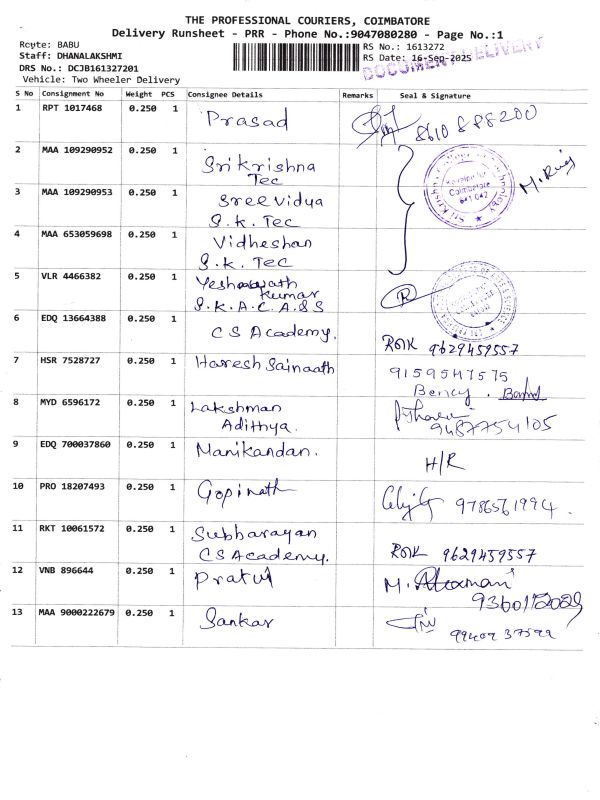 THE PROFESSIONAL COURIERS, COIMBATORE
Delivery Runsheet - PRR - Phone No.:9047080280 - Page No.:1
Route: BABU
RS No.: 1613272
Staff: DHANALAKSHMI
RS Date: 16-Sep-2025
DOCUMENT DELIVERY
DRS No.: DCJB161327201
Vehicle: Two Wheeler Delivery
S No Consignment No Weight PCS Consignee Details Remarks Seal & Signature
1 RPT 1017468 0.250 1 Prasad
2 MAA 109290952 0.250 1 Sri Krishna
Tec
3 MAA 109290953 0.250 1 Sree Vidya
S.K. Tec
4 MAA 653059698 0.250 1 Vidheshan
S.K. Tec
5 VLR 4466382 0.250 1
Kumar
S.K.A.C.A.S.S
6 EDQ 13664388 0.250 1 CS Academy. 9629459557
7 HSR 7528727 0.250 1 Haresh Sainaath 9159547575
Bency.
8 MYD 6596172 0.250 1 Lakshman
Adithya. 9487754105
9 EDQ 700037860 0.250 1 Manikandan. H/R
10 PRO 18207493 0.250 1 Gopinath 9786561994.
11 RKT 10061572 0.250 1 Subbarayan
CS Academy. 9629459557
12 VNB 896644 0.250 1 Pratul M.
13 MAA 9000222679 0.250 1 Sankar